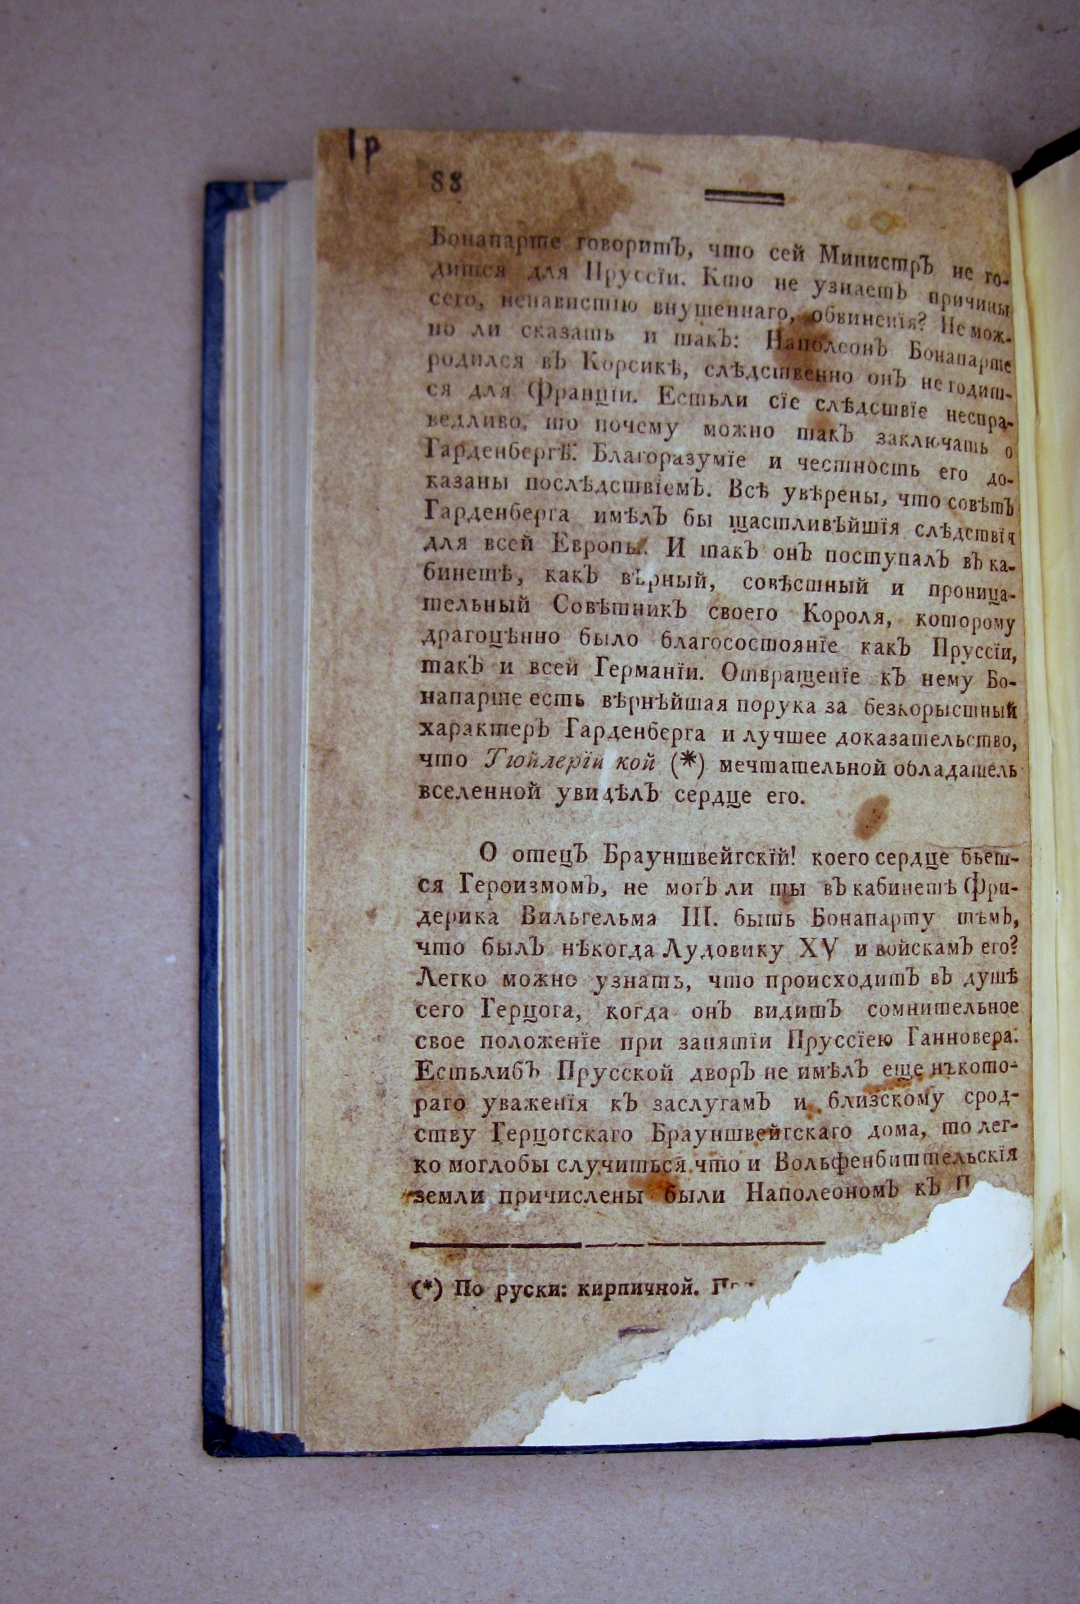 1 р
88
Бонапарте говоритъ, что сей Министръ не го-
дится для Пруссїи. Кто не узнаетъ причины
сего, ненавистїю внушеннаго, обвиненїя? Не мож-
но ли сказать и такъ: Наполеонъ Бонапарте
родился въ Корсикѣ, слѣдственно онъ не годит-
ся для Францїи. Естьли сїе слѣдствїе неспра-
ведливо, то почему можно такъ заключать о
Гарденбергѣ: Благоразумїе и честность его до-
казаны послѣдствїемъ. Всѣ увѣрены, что совѣтъ
Гарденберга имѣлъ бы щастливѣйшїя слѣдствїя
для всей Европы. И такъ онъ поступалъ въ ка-
бинетѣ, какъ вѣрный, совѣстный и проница-
тельный Совѣтникъ своего Короля, которому
драгоцѣнно было благосостоянїе какъ Пруссїи,
такъ и всей Германїи. Отвращенїе къ нему Бо-
напарте есть вѣрнѣйшая порука за безкорыстный
характеръ Гарденберга и лучшее доказательство,
что Тюйлерїй кой (*) мечтательной обладатель
вселенной увидѣлъ сердце его.
О отецъ Брауншвейгскїй! коего сердце бьет-
ся Героизмомъ, не могъ ли ты въ кабинетѣ Фри-
дерика Вильгельма III. быть Бонапарту тѣмъ,
что былъ нѣкогда Лудовику XV и войскамъ его?
Легко можно узнать, что происходитъ въ душѣ
сего Герцога, когда онъ видитъ сомнительное
свое положенїе при занятїи Пруссїею Ганновера.
Естьлибъ Прусской дворъ не имѣлъ еще нѣкото-
раго уваженїя къ заслугамъ и близскому срод-
ству Герцогскаго Брауншвейгскаго дома, то лег-
ко моглобы случиться что и Вольфенбиттельскїя
земли причислены были Наполеономъ къ П
(*) По руски: кирпичной.